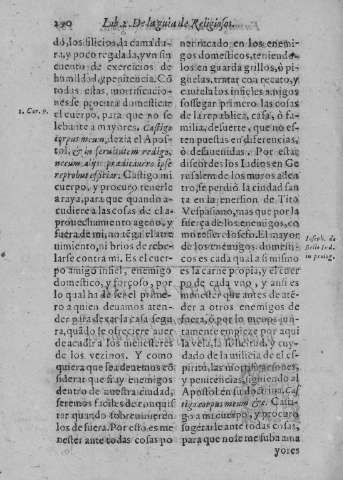 290 Lib. 2. De la guia de Religiosos.
do, los silicios, la cama du-
ra, y poco regalada, y vn sin
cuento de exercicios de
humildad, y penitencia. Cõ
todas estas mortificacio-
nes se procura domesticar
el cuerpo, para que no se
leuante a mayores. Castigo
corpus meum, dezia el Apos-
tol, & in seruitutem redigo,
Castigo mi
cuerpo, y procuro tenerle
a raya, para que quando a-
cudiere a las cosas de el a-
prouechamiento ageno, y
fuera de mi, no tẽga el atre
uimiento, ni brios de rebe-
larse contra mi. Es el cuer-
po amigo infiel, enemigo
domestico, y forçoso, por
lo qual ha de ser el prime-
ro a quien deuamos aten-
der para dexar la casa segu
ra, quãdo se ofreciere auer
de acudir a los menesteres
de los vezinos. Y como
quiera que sea deuemos cõ
siderar que si ay enemigos
dentro de nuestra ciudad,
seremos faciles de conquis
tar quando sobreuinieren
los de fuera. Por esto es me
nester ante todas cosas po
1. Cor. 9.
ner recado en los enemi-
gos domesticos, teniendo-
los en guarda grillos, ò pi-
guelas, tratar con recato, y
cautela los infieles amigos
sossegar primero las cosas
de la republica, casa, ò fa-
milia, de suerte, que no es-
ten puestas en diferencias,
ò desauenidas. Por estar
discordes los Iudios en Ge
rusalem de los muros aden
tro, se perdiò la ciudad san
ta en la enersion de Tito
Vespasiano, mas que por la
fuerça de los enemigos, co
mo refiere Iosefo. El mayor
de los enemigos domesti-
cos es cada qual a si mismo
es la carne propia, y el cuer
po de cada vno, y ansi es
menester que antes de atẽ-
der a otros enemigos de
fuera, ò por lo menos jun-
tamente empieze por aqui
la vela, la solicitud, y cuy-
dado de la milicia de el es-
piritu, las mortificaciones,
y penitencias, siguiendo al
Apostol en su doctrina. Cas
tigo corpus meum &c. Casti-
go a mi cuerpo, y procuro
sugetarle ante todas cosas,
para que no se me suba a ma
yores
Ioseph. de
Bello Iud.
in prolog.